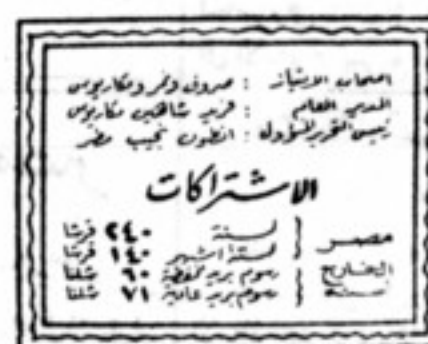 اصحاب الامتياز : صروف ونمر ومكاريوس
المدير العام : فريد شاهين مكاريوس
رئيس التحرير المسؤول : انطون نجيب مطر
الاشتراكات
مصر لسنة ٢٤٠ قرشا
لستة اشهر ١٤٠ قرشا
الخارج رسوم بريد مخفضة ٦٠ شلنا
سنة رسوم بريد عادية ٧١ شلنا